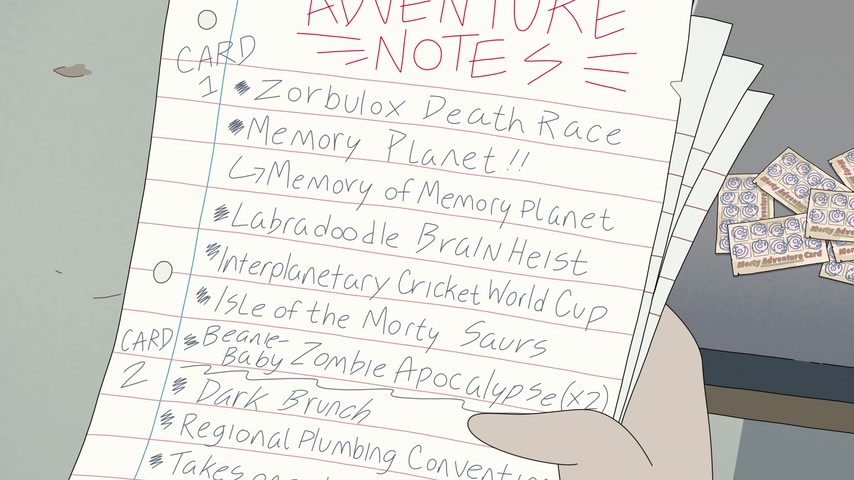 ADVENTURE
NOTES
CARD
1
Zorbulox Death Race
Memory Planet!!
Memory of Memory Planet
Labradoodle Brain Heist
Interplanetary Cricket World Cup
Isle of the Morty Saurs
CARD
2
Beanie-
Baby Zombie Apocalypse (x2)
Dark Brunch
Regional Plumbing Convention
Takes
Morty Adventure Card